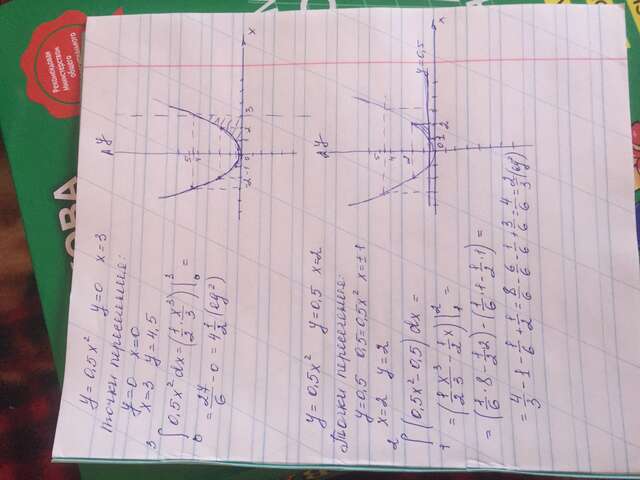 КОВА
Рекомендован
Министерством
общего
y = 0,5x² y=0 x=3
Точки пересечения:
y=0 x=0
x=3 y=4,5
∫₀³ 0,5x² dx = (1/2 · x³/3) |₀³ =
= 27/6 - 0 = 4 1/2 (ед²)
y
5
4
-2 -1 0 1 2 3 x
y = 0,5x² y=0,5 x=2
Точки пересечения:
y=0,5 0,5=0,5x² x=±1
x=2 y=2
∫₁² (0,5x² - 0,5) dx =
= (1/2 x³/3 - 1/2 x) |₁² =
= (1/6 · 8 - 1/2 2) - (1/6 · 1 - 1/2 · 1) =
= 4/3 - 1 - 1/6 + 1/2 = 8/6 - 6/6 - 1/6 + 3/6 = 4/6 = 2/3 (ед²)
y
5
4
2
y=0,5
0 1 2 x